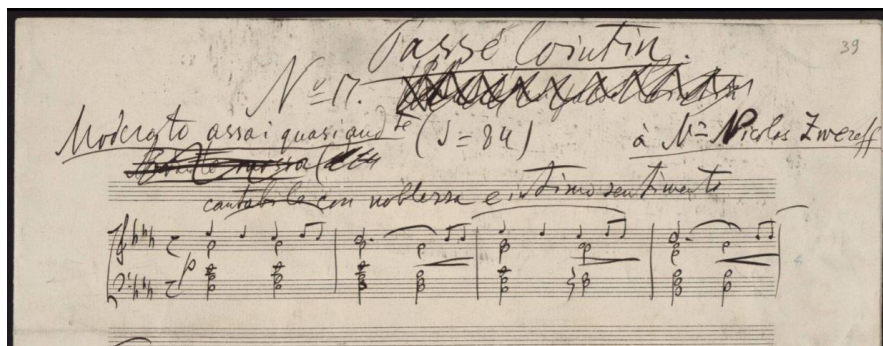 Passé lointin.
39
No 17.
Moderato assai quasi andte (♩ = 84)
à Mr Nicolas Zwereff
cantabile con noblezza e intimo sentimento
p